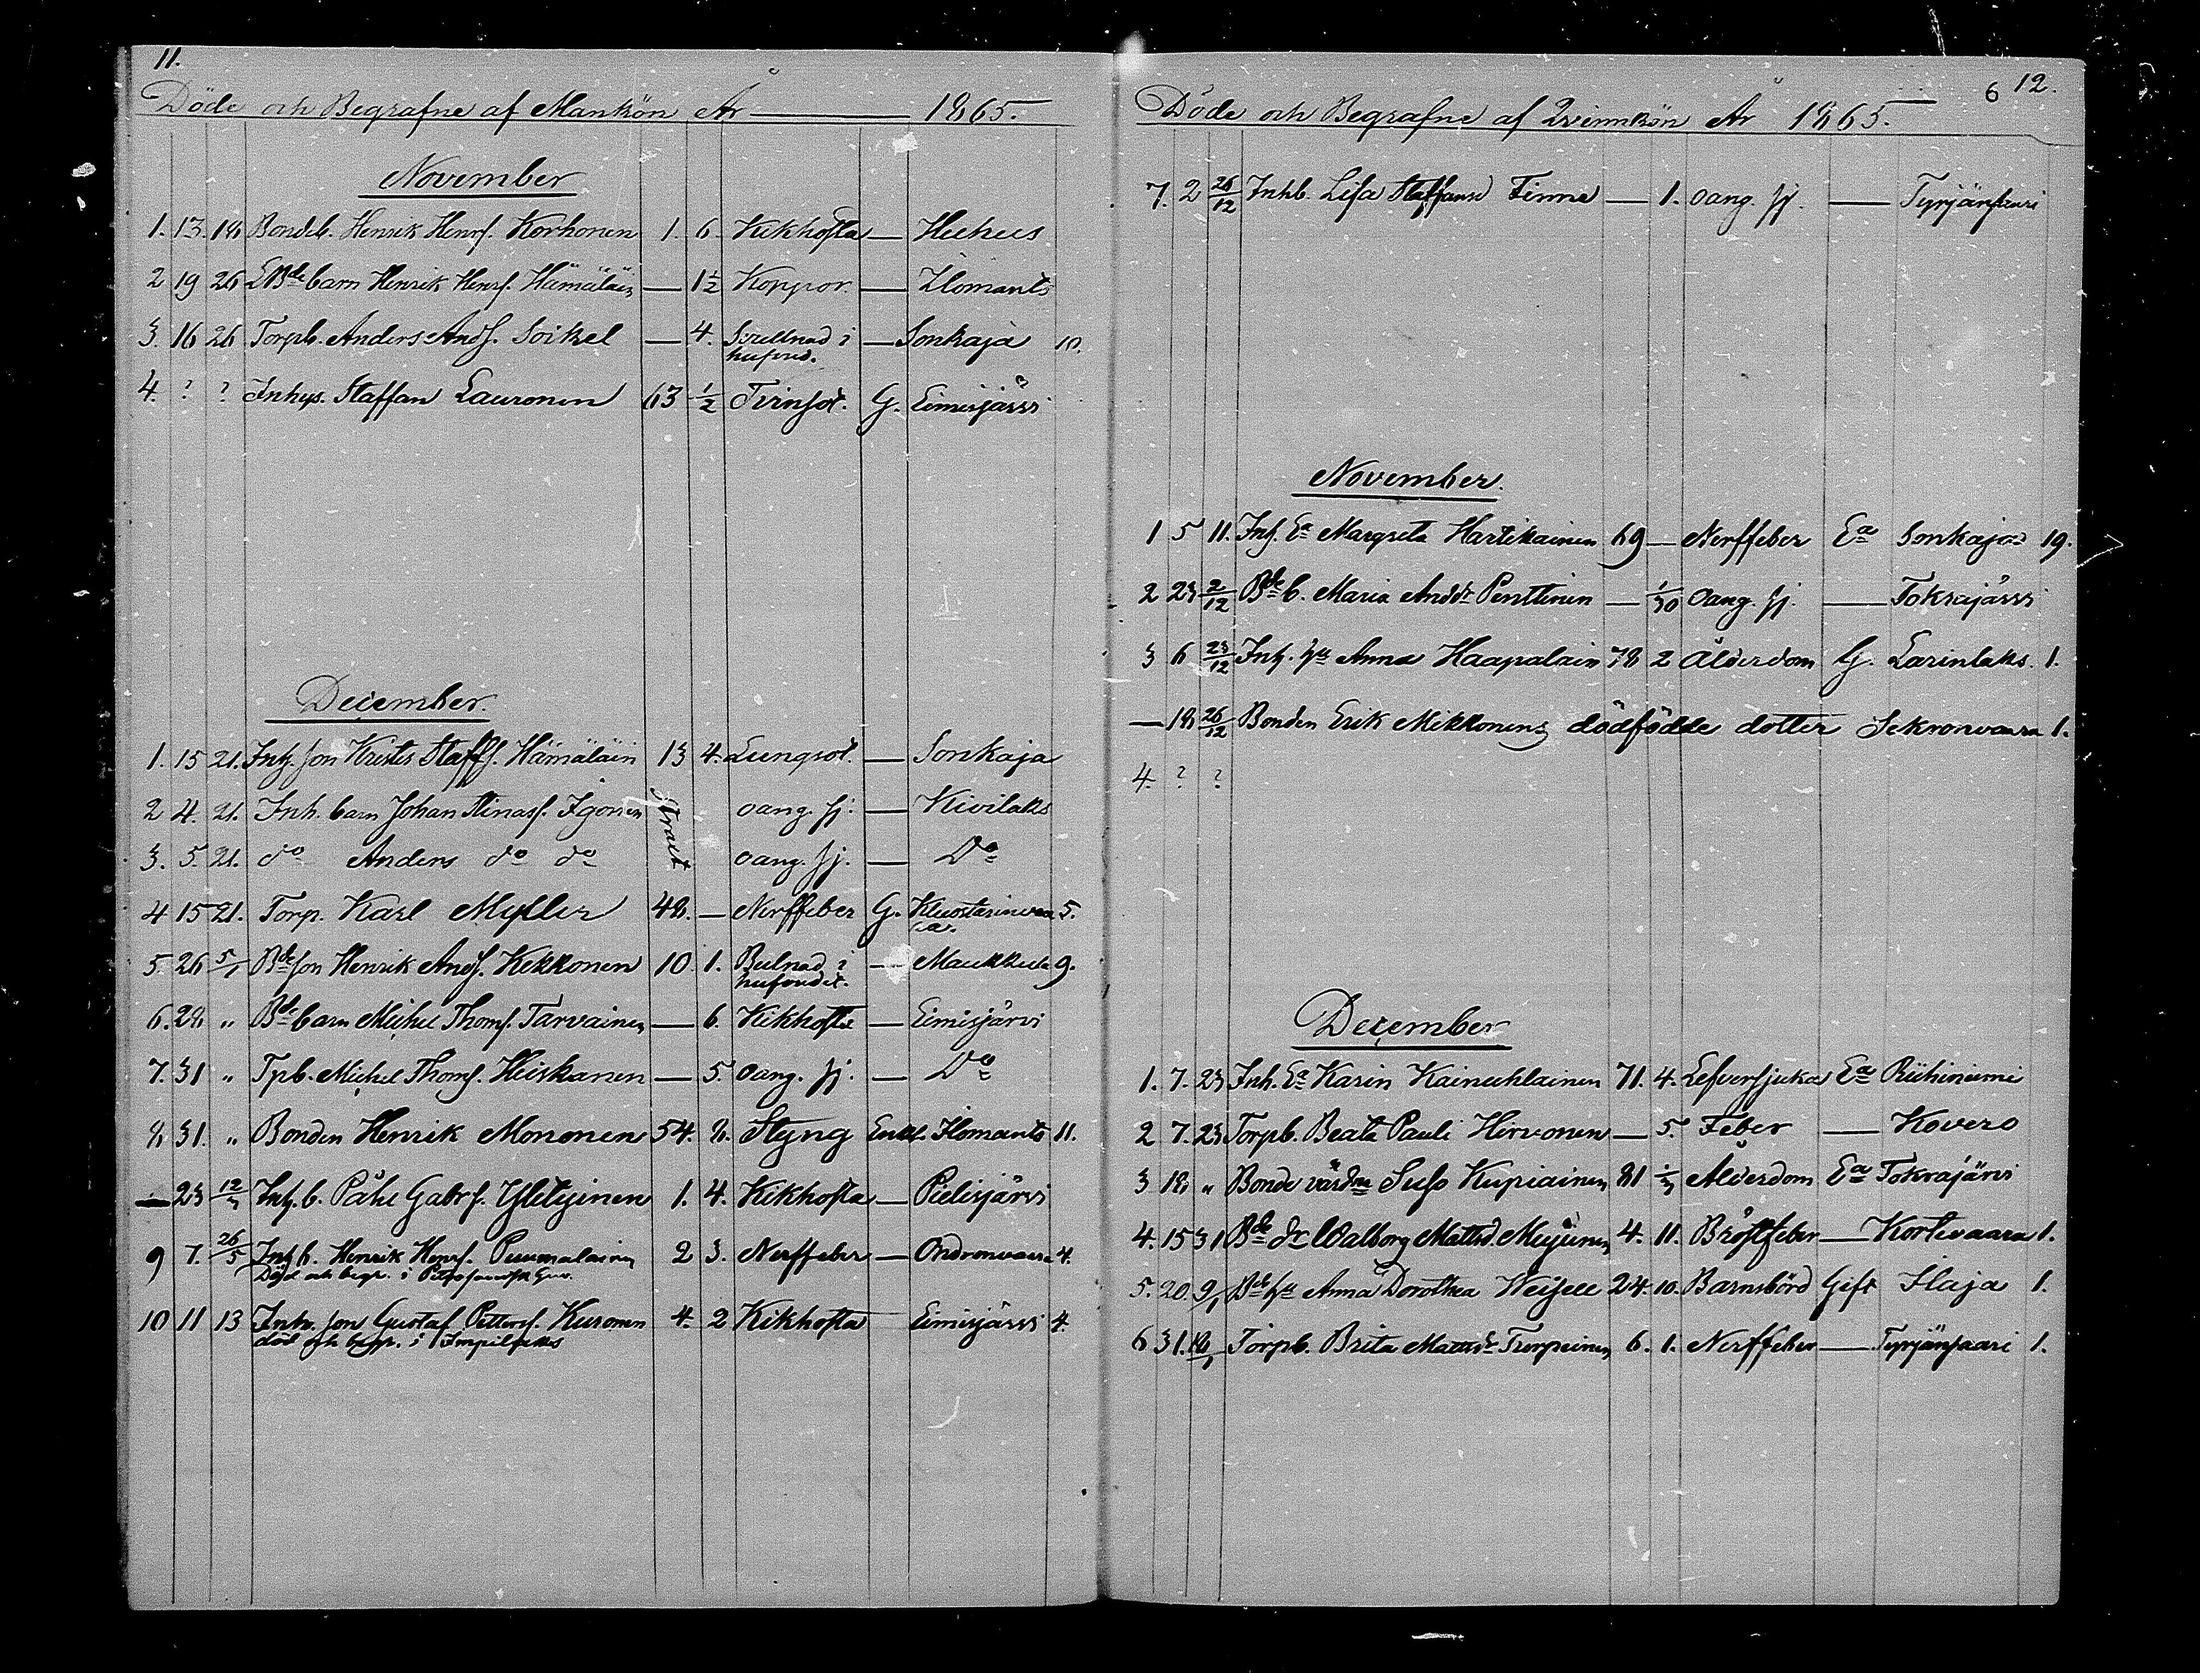 11.
Döde och Begrafne af Mankön År 1865.
November
1. 13. 18 Bondeb. Henrik Henrs. Korhonen 1. 6. Kikhosta — Huhus
2 19 26 barn Henrik Henrs. Hämäläin — 1½ Koppor — Ilomants
3. 16 26 Torpb. Anders Ands. Soikel — 4. Svullnad i — Sonkaja 10.
hufvud.
4. ? ? Inhys. Staffan Lauronen 63 ½ Tvinsot. G. Eimisjärvi
December.
1. 15 21. Inh. son Krister Staffs. Hämäläin 13 4. Lungsot. — Sonkaja
2 4. 21. Inh. barn Johan Stinas. Igonen strax oang. sj. — Kivilaks
3. 5. 21. do Anders do do oang. sj. — Do
4 15 21. Torp. Karl Myller 48. — Nerffeber G. 5.
5. 26 5/1 Bde son Henrik Ands. Kekkonen 10 1. Bulnad i — Maukkula 9.
hufvudet.
6. 28 " Bde barn Michel Thoms. Tarvainen — 6. Kikhosta — Eimisjärvi
7. 31 " Tpb. Michel Thoms. Heiskanen — 5. oang. sj. — Do
8 31. " Bonden Henrik Mononen 54. 8. Styng Enkl. Ilomants 11.
— 23 12/3 Inh. b. Påhl Gabrs. Ylitginen 1. 4. Kikhosta — Pielisjärvi
9 7. 26/5 Inh b. Henrik Henrs. Puumalainen 2 3. Nerffeber — Ondronvaara 4.
Död och begr. i
10 11 13 Inh. son Gustaf Petters. Kuronen 4. 2 Kikhosta Eimisjärvi 4.
död och begr. i Impilaks
6 12.
Döde och Begrafne af Qvinnkön År 1865.
7. 2 26/12 Inhb. Lisa Staffansd Finne — 1. oang. sj. — Tyrjänsaari
November.
1 5 11. Inh. Ea Margreta Hartikainen 69 — Nerffeber Ea Sonkaja 19.
2 23 2/12 Bde b. Maria Andd Penttinen — 1/30 Oang. sj. — Tokrajärvi
3 6 23/12 Inh. hu Anna Haapalain 78 2 Ålderdom G. Larinlaks. 1.
— 18 26/12 Bonden Erik Mikkonens dödfödde dotter Sekronvaara 1.
4. ? ?
December
1. 7. 23 Inh. Ea Karin Kainuhlainen 71. 4. Lefversjuka Ea Riihiniemi
2 7. 23 Torpb. Beata Pauli Hirvonen — 5. Feber — Kovero
3 18 " Bonde värdna Sufo Kupiainen 81 Ålderdom Ea Tokrajärvi
4. 15 31 Bde dr Walborg Mattsd. 4. 11. Bröstfeber — Kortevaara 1.
5. 20. 9/1 Bde hu Anna Dorothea 24. 10. Barnsbörd Gift Ilaja 1.
6 31. Torpb. Brita Mattsd Turpeinen 6. 1. Nerffeber — Tyrjänsaari 1.